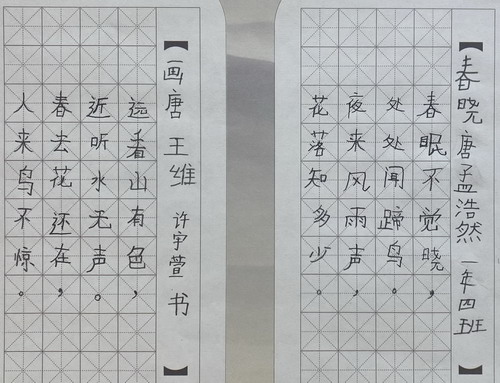 【春晓 唐 孟浩然 一年四班】
春眠不觉晓，
处处闻蹄鸟。
夜来风雨声，
花落知多少。
【画 唐 王维 许宇萱 书】
远看山有色，
近听水无声。
春去花还在，
人来鸟不惊。